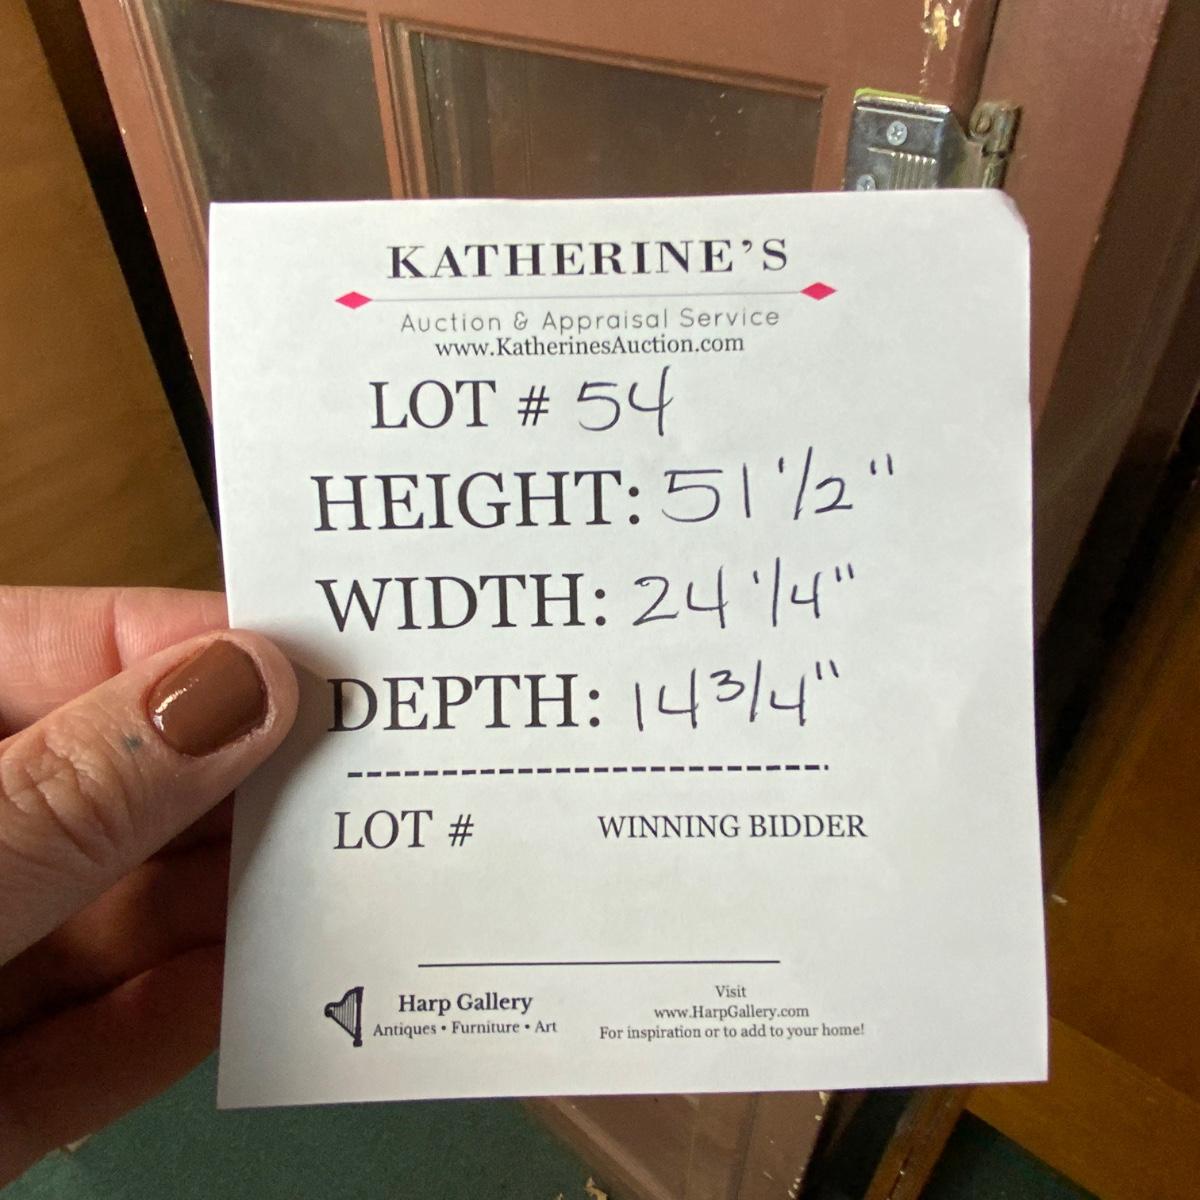 KATHERINE'S
Auction & Appraisal Service
www.KatherinesAuction.com
LOT # 54
HEIGHT: 51 1/2"
WIDTH: 24 1/4"
DEPTH: 14 3/4"
-------------------------.
LOT # WINNING BIDDER
Harp Gallery
Antiques • Furniture • Art
Visit
www.HarpGallery.com
For inspiration or to add to your home!